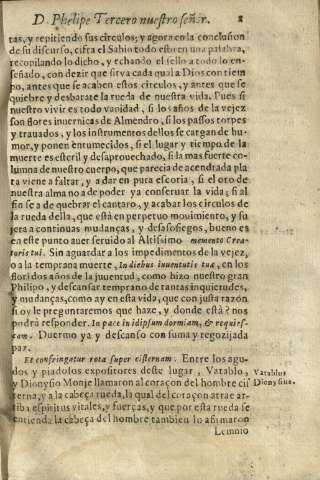 D. Phelipe Tercero nuestro señor. 2
tas, y repitiendo sus circulos; y agora en la conclusion
de su discurso, cifra el Sabio todo esto en una palabra,
recopilando lo dicho, y echando el sello a todo lo en-
señado, con dezir que sirva cada qual a Dios con tiem
po, antes que se acaben estos circulos, y antes que se
quiebre y desbarate la rueda de nuestra vida. Pues si
nuestro vivir es todo vanidad, si los años de la vejez
son flores invernicas de Almendro, si los passos torpes
y travados, y los instrumentos dellos se cargan de hu-
mor, y ponen entumecidos, si el lugar y tiempo de la
muerte es esteril y desaprouechado, si la mas fuerte co-
lumna de nuestro cuerpo, que parecia de acendrada pla
ta viene a faltar, y a dar en pura escoria, si el oro de
nuestra alma no a de poder ya conservar la vida; si al
fin se a de quebrar el cantaro, y acabar los circulos de
la rueda della, que està en perpetuo movimiento, y su
jera a continuas mudanças, y desasosiegos, bueno es
en este punto aver servido al Altissimo memento Crea
toris tui. Sin aguardar a los impedimentos de la vejez,
o a la temprana muerte, In diebus iuuentutis tuæ, en los
floridos años de la juventud, como hizo nuestro gran
Philipo, y descansar temprano de tantas inquietudes,
y mudanças, como ay en esta vida, que con justa razon
si oy le preguntaremos que haze, y donde està? nos
podrà responder. In pace in idipsum dormiam, & requies-
cam. Duermo ya y descanso con suma y regozijada
paz.
Et confringatur rota super cisternam. Entre los agu-
dos y piadosos expositores deste lugar, Vatablo,
Vatablus
y Dionysio Monje llamaron al coraçon del hombre cis
Dionysius.
terna, y a la cabeça rueda, la qual del coraçon atrae ar-
riba espiritus vitales, y fuerças, y que por esta rueda se
entienda la cabeça del hombre tambien lo afirmaron
Lemnio